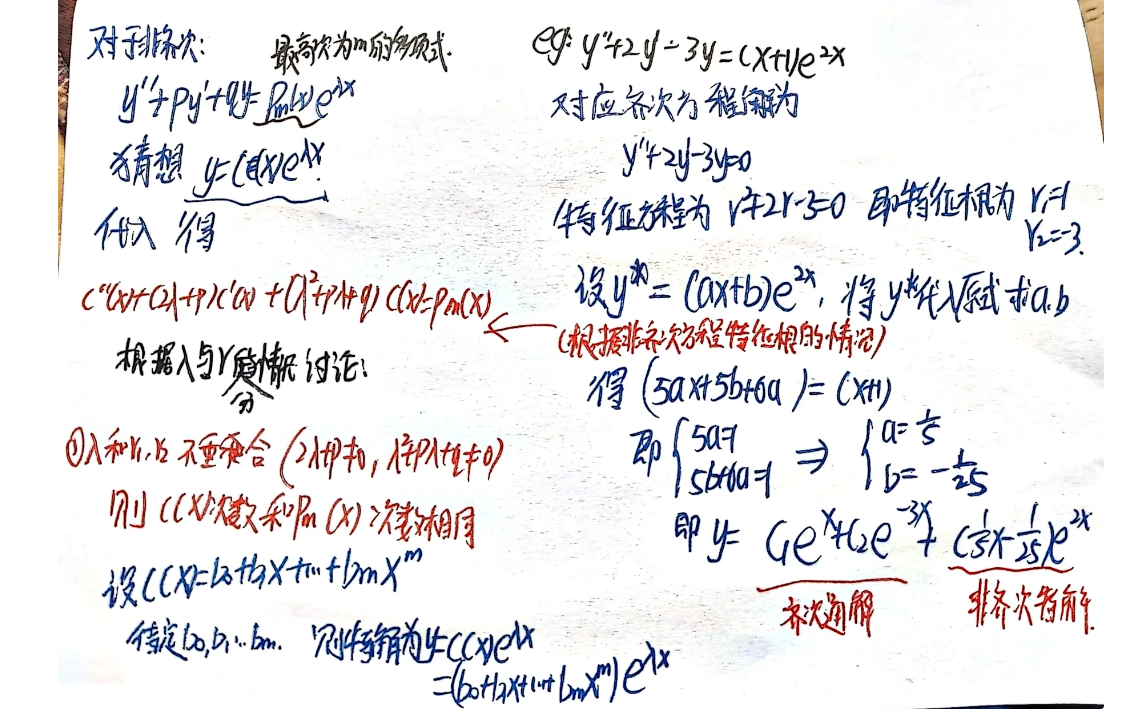 对于非齐次:
最高次为m的多项式.
y''+py'+qy=Pm(x)e^λx
猜想 y=C(x)e^λx.
代入 得
C''(x)+(2λ+p)C'(x)+(λ²+pλ+q)C(x)=Pm(x)
根据λ与r 情况讨论:
分
①λ和r₁,r₂不重合(2λ+p≠0, λ²+pλ+q≠0)
则C(x)次数和Pm(x)次数相同
设C(x)=b₀+b₁x+...+bmx^m
待定b₀,b₁...bm. 则特解为y=C(x)e^λx
=(b₀+b₁x+...+bmx^m)e^λx
eg: y''+2y'-3y=(x+1)e^2x
对应齐次方程解为
y''+2y'-3y=0
特征方程为 r²+2r-3=0 即特征根为 r₁=1
r₂=-3.
设y*=(ax+b)e^2x, 将y*代入原式求a.b
(根据非齐次方程特征根的情况)
得(5ax+5b+6a)=(x+1)
即{5a=1 ⇒ {a=1/5
5b+6a=1 b=-1/25
即 y= C₁e^x+C₂e^-3x+(1/5x-1/25)e^2x
齐次通解 非齐次特解.